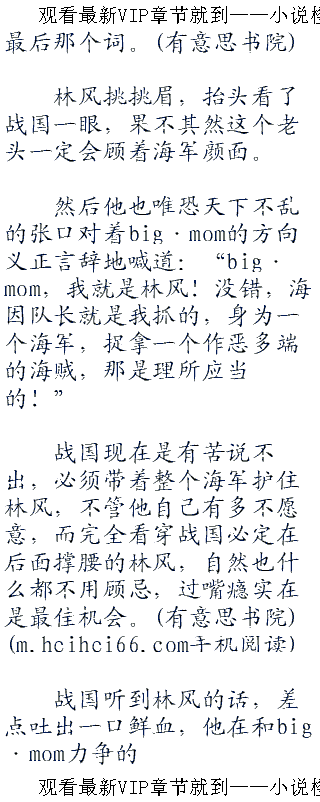 观看最新VIP章节就到——小说
最后那个词。(有意思书院)
林风挑挑眉，抬头看了
战国一眼，果不其然这个老
头一定会顾着海军颜面。
然后他也唯恐天下不乱
的张口对着big·mom的方向
义正言辞地喊道：“big·
mom，我就是林风！没错，海
因队长就是我抓的，身为一
个海军，捉拿一个作恶多端
的海贼，那是理所应当
的！”
战国现在是有苦说不
出，必须带着整个海军护住
林风，不管他自己有多不愿
意，而完全看穿战国必定在
后面撑腰的林风，自然也什
么都不用顾忌，过嘴瘾实在
是最佳机会。(有意思书院)
(m.hcihci66.com手机阅读)
战国听到林风的话，差
点吐出一口鲜血，他在和big
·mom力争的
观看最新VIP章节就到——小说